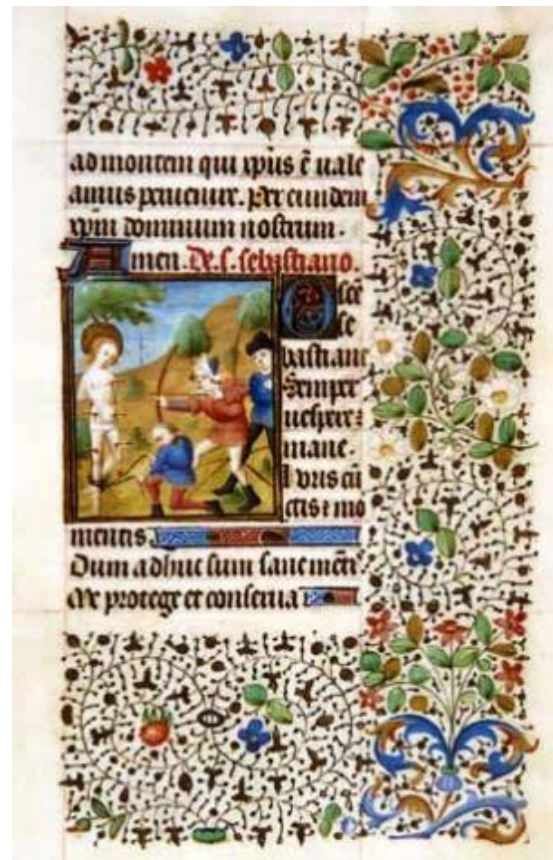 ad montem qui xp̄us ē uale
amus peruenire. Per eundem
xp̄m dominum nostrum.
Amen. De. s. sebastiano.
O Sc̄e
se
bastiane
Semper
uespere ⁊
mane.
Horis cū
ctis ⁊ mo
mentis.
Dum adhuc sum sane mēt̄
Me protege et conserua